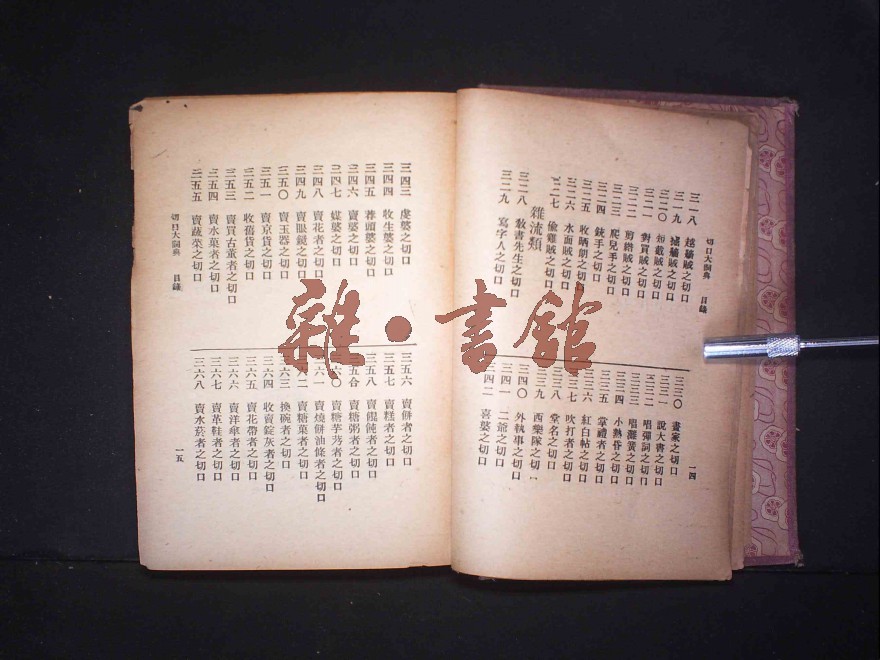 切口大詞典 目錄
一四
三一八 越牆賊之切口
三一九 掘牆賊之切口
三二〇 短截賊之切口
三二一 對買賊之切口
三二二 剪綹賊之切口
三二三 爬兒手之切口
三二四 銃手之切口
三二五 收晒朗之切口
三二六 水面賊之切口
三二七 偷雞賊之切口
雜流類
三二八 敎書先生之切口
三二九 寫字人之切口
三三〇 畫家之切口
三三一 說大書之切口
三三二 唱彈詞之切口
三三三 唱灘簧之切口
三三四 小熱昏之切口
三三五 掌禮者之切口
三三六 紅白帖之切口
三三七 吹打者之切口
三三八 堂名之切口
三三九 西樂隊之切口
三四〇 外執事之切口
三四一 二爺之切口
三四二 喜婆之切口
三四三 虔婆之切口
三四四 收生婆之切口
三四五 薦頭婆之切口
三四六 賣婆之切口
三四七 媒婆之切口
三四八 賣花者之切口
三四九 賣眼鏡之切口
三五〇 賣玉器之切口
三五一 賣京貨之切口
三五二 收舊貨之切口
三五三 賣買古董者之切口
三五四 賣水菓者之切口
三五五 賣蔬菜之切口
切口大詞典 目錄
三五六 賣餅者之切口
三五七 賣糕者之切口
三五八 賣餛飩者之切口
五合 賣糖粥者之切口
六〇 賣糖芋艿者之切口
六一 賣燒餅油條者之切口
六二 賣糖菓者之切口
六三 換碗者之切口
三六四 收賣錠灰者之切口
三六五 賣花帶者之切口
三六六 賣洋傘者之切口
三六七 賣革鞋者之切口
三六八 賣水菸者之切口
一五
雜·書館